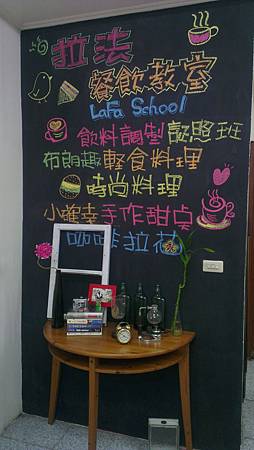 拉法
餐飲教室
LaFa School
飲料調製證照班
布朗趣輕食料理
時尚料理
小確幸手作甜点
咖啡拉花